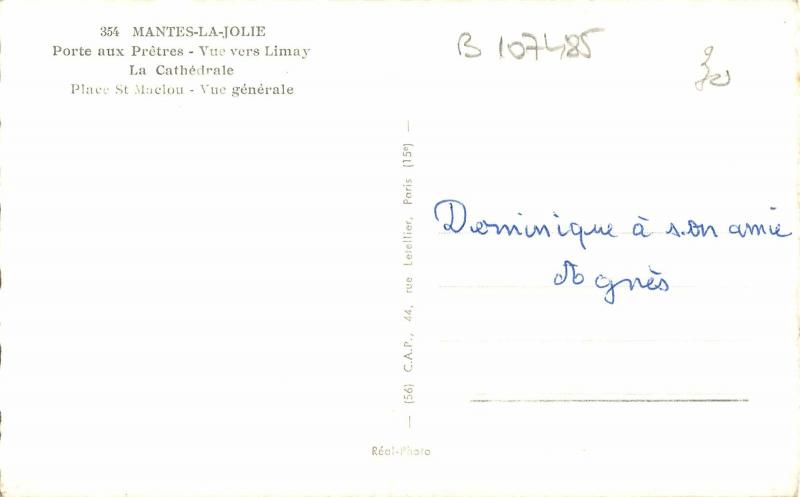 354 MANTES-LA-JOLIE
Porte aux Prêtres - Vue vers Limay
La Cathédrale
Place St Maclou - Vue générale
B 107485
(56) C.A.P., 44, rue Letellier, Paris (15e)
Dominique à son amie
Agnès
Réal-Photo